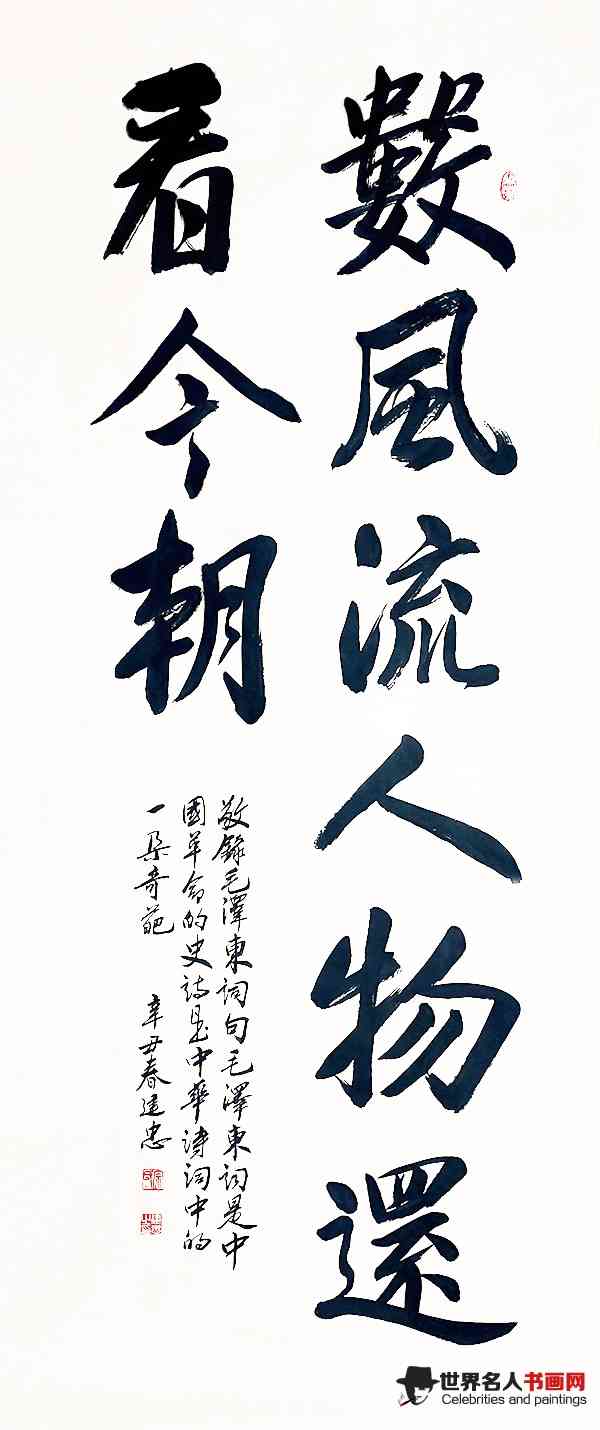 數風流人物還
看今朝
敬錄毛澤東词句毛澤東词是中
國革命的史詩是中華诗词中的
一朵奇葩 辛丑春建忠
世界名人书画网
Celebrities and paintings